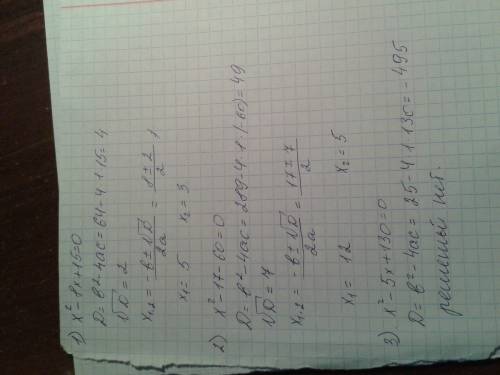 1) x² - 8x + 15 = 0
D = b² - 4ac = 64 - 4·1·15 = 4
√D = 2
x₁,₂ = (-b ± √D)/2a = (8 ± 2)/2
x₁ = 5 x₂ = 3
2) x² - 17 - 60 = 0
D = b² - 4ac = 289 - 4·1·(-60) = 49
√D = 7
x₁,₂ = (-b ± √D)/2a = (17 ± 7)/2
x₁ = 12 x₂ = 5
3) x² - 5x + 130 = 0
D = b² - 4ac = 25 - 4·1·130 = -495
решений нет.